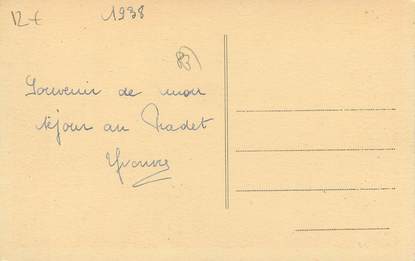 12 €
1938
83)
Souvenir de mon
séjour au Pradet
Yvonne